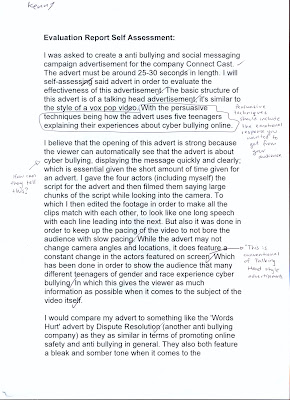 Kenny
Evaluation Report Self Assessment:
I was asked to create a anti bullying and social messaging
campaign advertisement for the company Connect Cast.
The advert must be around 25-30 seconds in length. I will
self-assessing said advert in order to evaluate the
effectiveness of this advertisement. The basic structure of
this advert is of a talking head advertisement, it's similar to
the style of a vox pop video. With the persuasive
techniques being how the advert uses five teenagers
explaining their experiences about cyber bullying online.
Persuasive
techniques
should include
the emotional
response you
want to
get from
your
audience
I believe that the opening of this advert is strong because
the viewer can automatically see that the advert is about
cyber bullying, displaying the message quickly and clearly;
which is essential given the short amount of time given for
an advert. I gave the four actors (including myself) the
script for the advert and then filmed them saying large
chunks of the script while looking into the camera. To
which I then edited the footage in order to make all the
clips match with each other, to look like one long speech
with each line leading into the next. But also it was done in
order to keep up the pacing of the video to not bore the
audience with slow pacing. While the advert may not
change camera angles and locations, it does feature a
constant change in the actors featured on screen. Which
has been done in order to show the audience that many
different teenagers of gender and race experience cyber
bullying. In which this gives the viewer as much
information as possible when it comes to the subject of the
video itself.
How can
they tell
this?
This is
conventional
of Talking
Head style
advertisements
I would compare my advert to something like the 'Words
Hurt' advert by Dispute Resolution (another anti bullying
company) as they as similar in terms of promoting online
safety and anti bullying in general. They also both feature
a bleak and somber tone when it comes to the